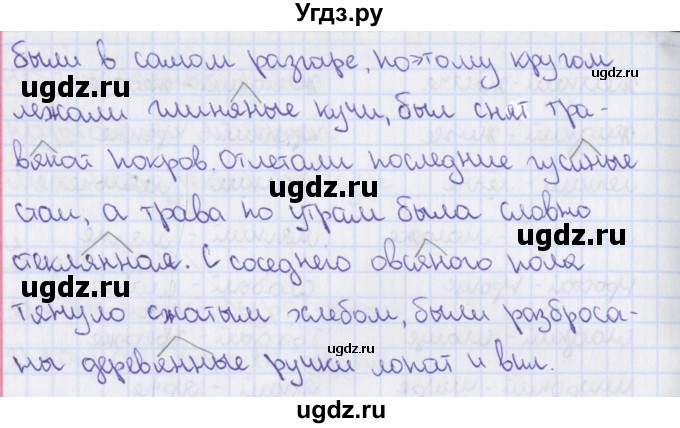 Угдз.ру
были в самом разгаре, поэтому кругом
лежали глиняные кучи, был снят тра-
вяной покров. Отлетали последние гусиные
стаи, а трава по утрам была словно
стеклянная. С соседнего овсяного поля
тянуло сжатым хлебом, были разброса-
ны деревянные ручки лопат и вил.
ugdz.ru
ugdz.ru
ugdz.ru
ugdz.ru
ugdz.ru
ugdz.ru
ugdz.ru
ugdz.ru
ugdz.ru
ugdz.ru